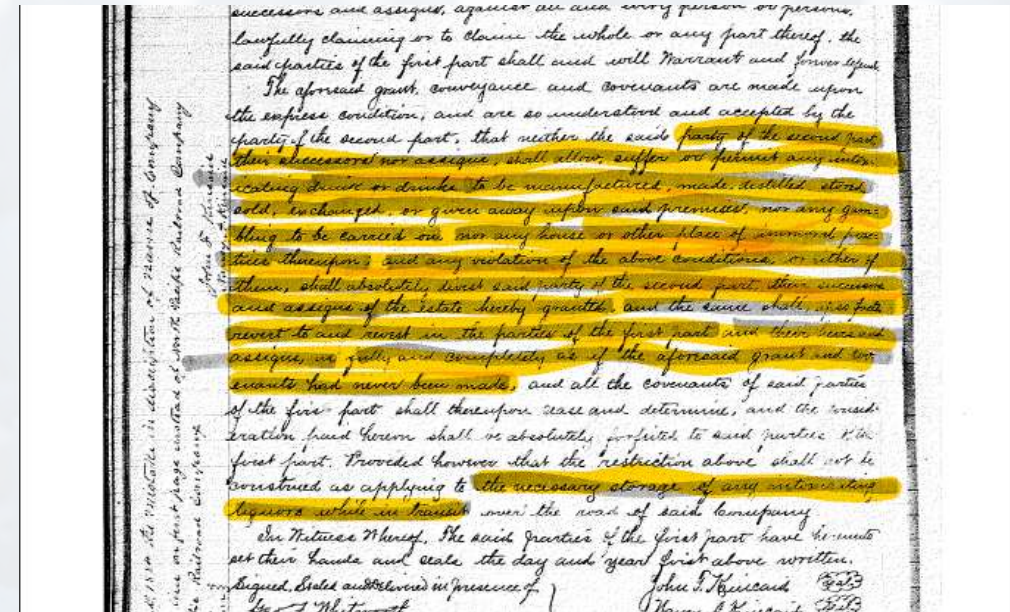 successors and assigns, against all and every person or persons,
lawfully claiming or to claim the whole or any part thereof, the
said parties of the first part shall and will Warrant and forever defend.
The aforesaid grant, conveyance and covenants are made upon
the express condition, and are so understood and accepted by the
party of the second part, that neither the said party of the second part,
their successors nor assigns, shall allow, suffer or permit any intox-
icating drink or drinks to be manufactured, made, distilled, stored
sold, exchanged, or given away upon said premises, nor any gam-
bling to be carried on, nor any house or other place of immoral prac-
tices thereupon, and any violation of the above conditions, or either of
them, shall absolutely divest said party of the second part, their successors
and assigns of the estate hereby granted, and the same shall, ipso facto
revert to and revest in the parties of the first part and their heirs and
assigns, as fully and completely as if the aforesaid grant and cov-
enants had never been made, and all the covenants of said parties
of the first part shall thereupon cease and determine, and the consid-
eration paid hereon shall be absolutely forfeited to said parties of the
first part. Provided however that the restriction above shall not be
construed as applying to the necessary storage of any intoxicating
liquors while in transit over the road of said Company
In Witness Whereof, The said parties of the first part have hereunto
set their hands and seals the day and year first above written.
Signed, Sealed and Delivered in presence of } John F. Kincaid
Geo. F. Whitworth
the mistake in description of name of Company
on first page instead of North Pacific Railroad Company
Railroad Company
John F. Kincaid